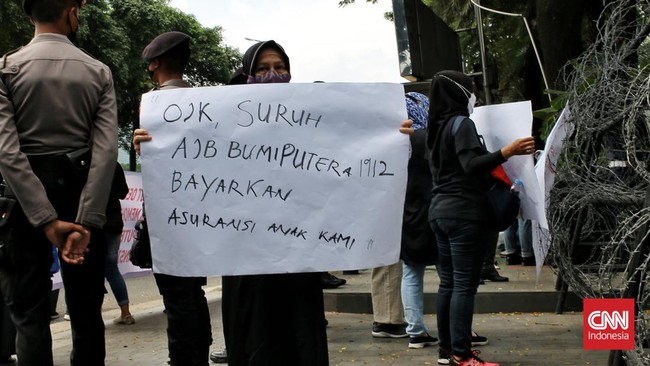 OJK, SURUH
AJB BUMIPUTERA 1912
BAYARKAN
ASURANSI ANAK KAMI !!
CNN
Indonesia